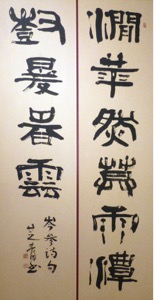 澗華然暮雨潭
樹暖春雲
岑參詩句